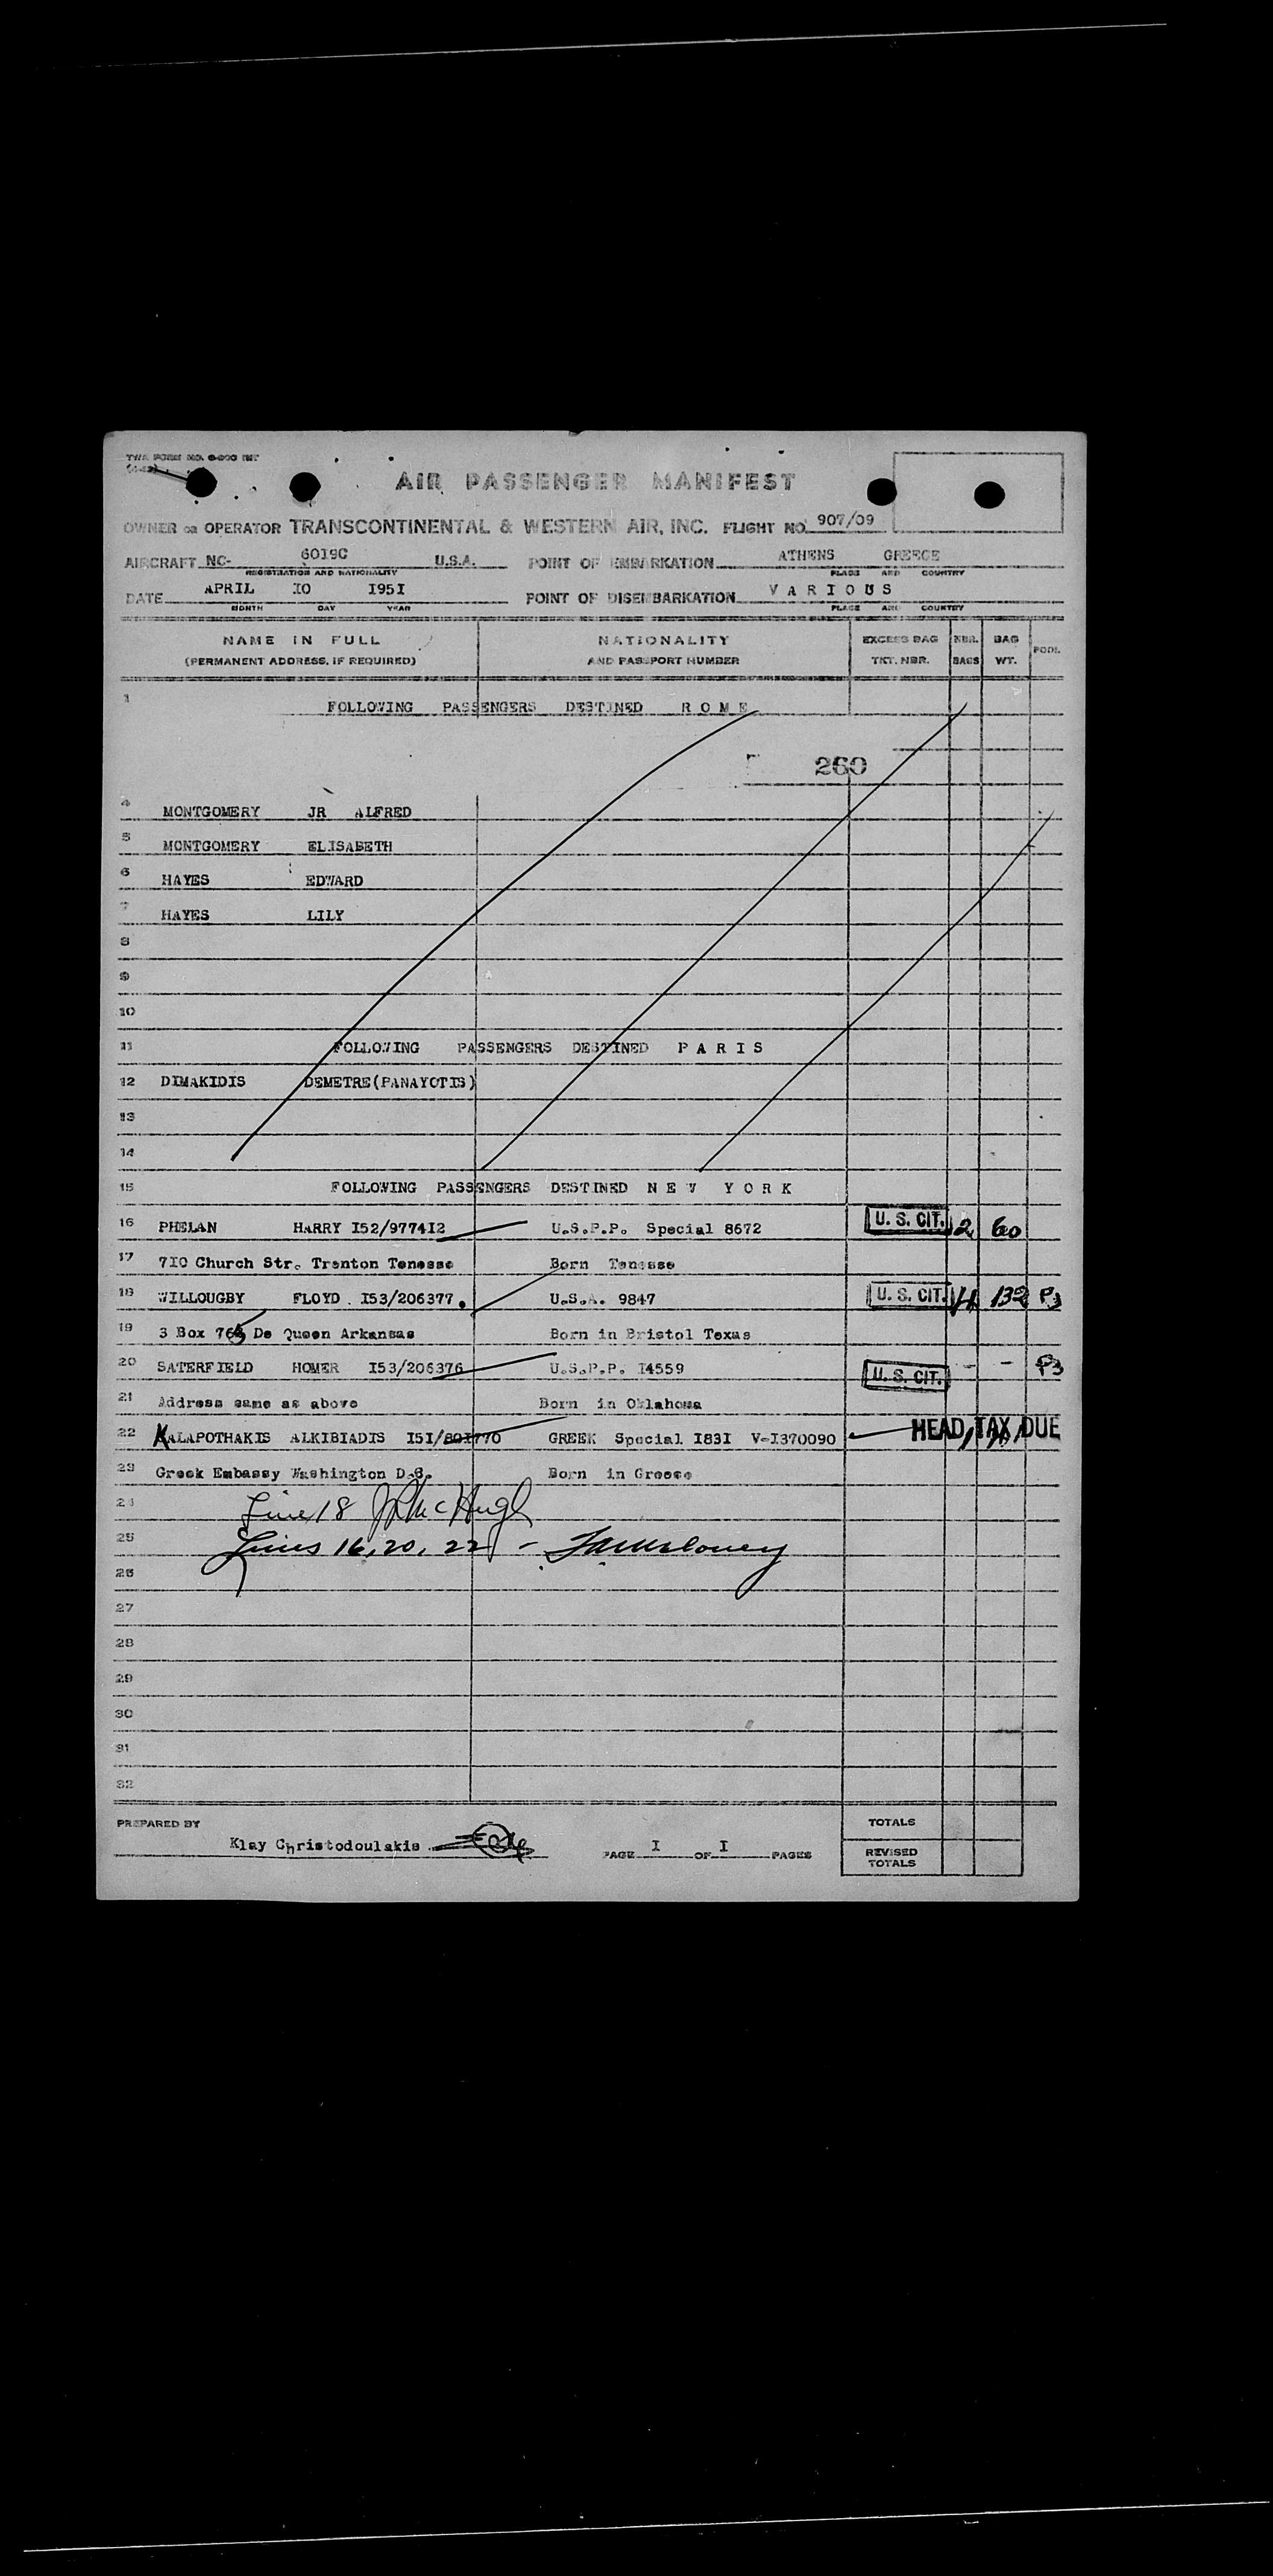 AIR PASSENGER MANIFEST
OWNER OR OPERATOR TRANSCONTINENTAL & WESTERN AIR, INC. FLIGHT NO. 907/09
AIRCRAFT NC- 6019C U.S.A. POINT OF EMBARKATION ATHENS GREECE
REGISTRATION AND NATIONALITY PLACE AND COUNTRY
DATE APRIL I0 I95I POINT OF DISEMBARKATION V A R I O U S
MONTH DAY YEAR PLACE AND COUNTRY
NAME IN FULL NATIONALITY EXCESS BAG NBR. BAG POOL
(PERMANENT ADDRESS, IF REQUIRED) AND PASSPORT NUMBER TKT. NBR. BAGS WT.
1 FOLLOWING PASSENGERS DESTINED R O M E
260
4 MONTGOMERY JR ALFRED
5 MONTGOMERY ELISABETH
6 HAYES EDWARD
7 HAYES LILY
8
9
10
11 FOLLOWING PASSENGERS DESTINED P A R I S
12 DIMAKIDIS DEMETRE(PANAYOTIS)
13
14
15 FOLLOWING PASSENGERS DESTINED N E W Y O R K
16 PHELAN HARRY I52/9774I2 U.S.P.P. Special 8672 U. S. CIT. 2 60
17 7I0 Church Str. Trenton Tenesse Born Tenesse
18 WILLOUGBY FLOYD . I53/206377. U.S.A. 9847 U. S. CIT. 4 132 P3
19 3 Box De Queen Arkansas Born in Bristol Texas
20 SATERFIELD HOMER I53/206376 U.S.P.P. I4559 U. S. CIT. - - P3
21 Address same as above Born in Oklahoma
22 KALAPOTHAKIS ALKIBIADIS I5I/80I770 GREEK Special I83I V-I370090 HEAD TAX DUE
23 Greek Embassy Washington D.C. Born in Greece
24 Line 18 McHugh
25 Lines 16, 20, 22 -
26
27
28
29
30
31
32
PREPARED BY TOTALS
Klay Christodoulakis PAGE I OF I PAGES REVISED TOTALS